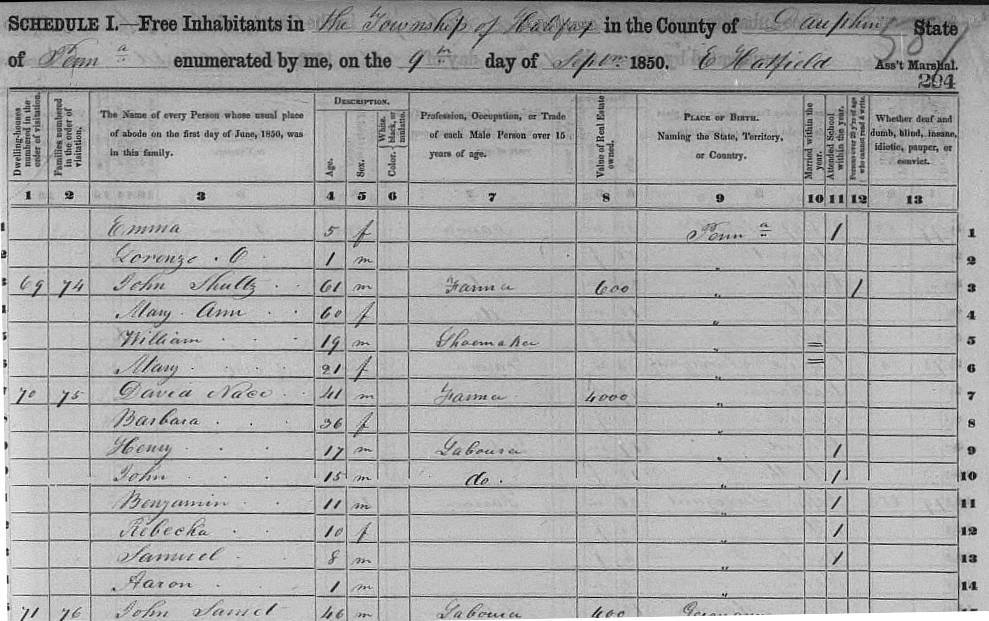 SCHEDULE I.—Free Inhabitants in the Township of Halifax in the County of Dauphin State
of Penn a enumerated by me, on the 9th day of Septm 1850. E Hatfield Ass't Marshal.
587
294
Dwelling-houses numbered in the order of visitation. Families numbered in the order of visitation. The Name of every Person whose usual place of abode on the first day of June, 1850, was in this family. DESCRIPTION. Age. Sex. Color, White, black, or mulatto. Profession, Occupation, or Trade of each Male Person over 15 years of age. Value of Real Estate owned. PLACE OF BIRTH. Naming the State, Territory, or Country. Married within the year. Attended School within the year. Persons over 20 y'rs of age who cannot read & write. Whether deaf and dumb, blind, insane, idiotic, pauper, or convict.
1 2 3 4 5 6 7 8 9 10 11 12 13
1 Emma 5 f Penn a 1 1
2 Lorenzo . O 1 m " 2
3 69 74 John Shultz 61 m Farmer 600 " 1 3
4 Mary Ann 60 f " 4
5 William 19 m Shoemaker " = 5
6 Mary 21 f " = 6
7 70 75 David Nace 41 m Farmer 4000 " 7
8 Barbara 36 f " 8
9 Henry 17 m Labourer " 1 9
10 John 15 m do. " 1 10
11 Benjamin 11 m " 1 11
12 Rebecka 10 f " 1 12
13 Samuel 8 m " 1 13
14 Aaron 1 m " 14
71 76 John 46 m Labourer 400 Germany